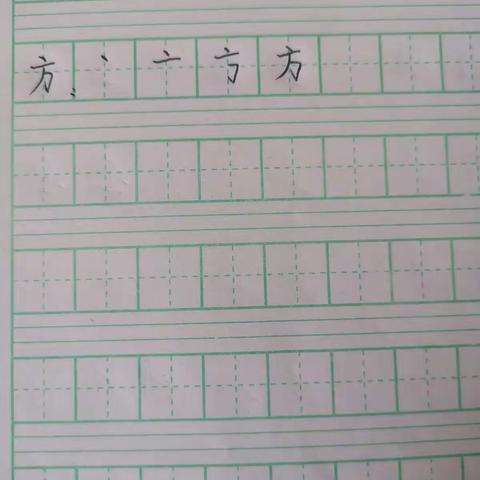 方：丶亠亐方